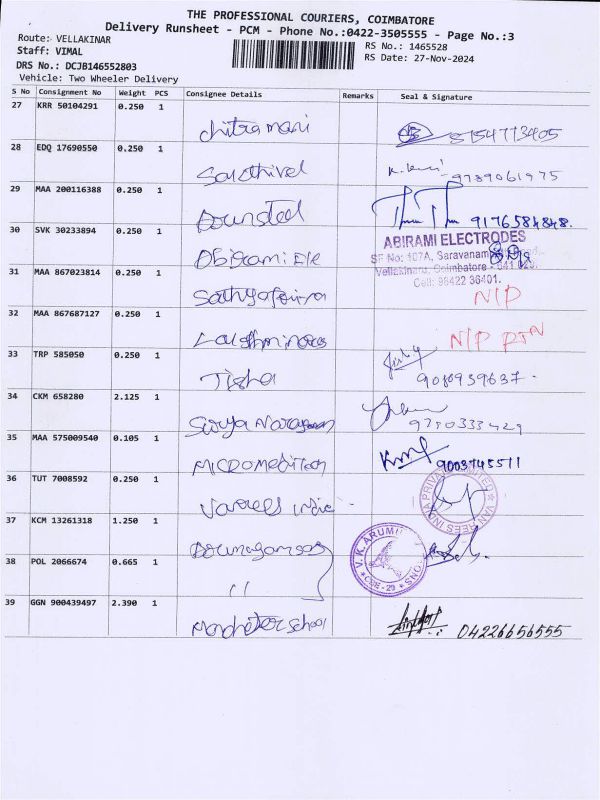 THE PROFESSIONAL COURIERS, COIMBATORE
Delivery Runsheet - PCM - Phone No.:0422-3505555 - Page No.:3
Route: VELLAKINAR
RS No.: 1465528
Staff: VIMAL
RS Date: 27-Nov-2024
DRS No.: DCJB146552803
Vehicle: Two Wheeler Delivery
S No Consignment No Weight PCS Consignee Details Remarks Seal & Signature
27 KRR 50104291 0.250 1
chitramani 8154773405
28 EDQ 17690550 0.250 1
Sakthivel 9789061975
29 MAA 200116388 0.250 1
9176584848.
30 SVK 30233894 0.250 1
ABIRAMI ELECTRODES
SF No: 107A, Saravanam
Abirami Ele
Vellakinaru, Coimbatore - 641 029.
31 MAA 867023814 0.250 1
Cell: 98422 36401.
N/P
32 MAA 867687127 0.250 1
N/P RTN
33 TRP 585050 0.250 1
Tisha
34 CKM 658280 2.125 1
Surya Narayanan
35 MAA 575009540 0.105 1
MICROMEDITECH 9003745511
36 TUT 7008592 0.250 1
Vanrees India
VAN REES INDIA PRIVATE LIMITED
37 KCM 13261318 1.250 1
V. K. ARUMU
CBE-29
38 POL 2066674 0.665 1
"
39 GGN 900439497 2.390 1
Manchester School 04226656555